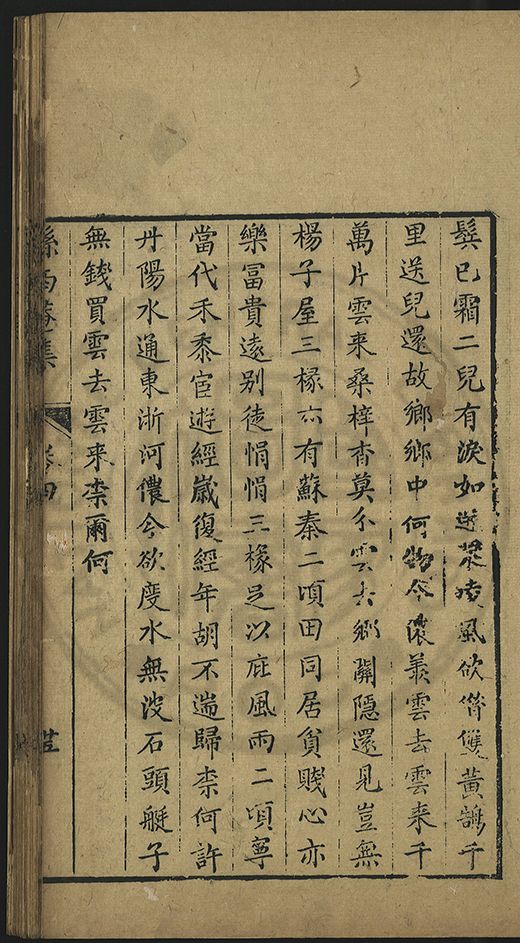 鬓已霜二兒有淚如欲借雙黃鵠千
里送兒還故鄉鄉中何物令儂羨雲去雲来千
萬片雲来桑梓杳莫分雲去鄉關隱還見豈無
楊子屋三椽亦有蘇秦二頃田同居貧賤心亦
樂冨貴遠别徒悁悁三椽足以庇風雨二頃寧
當代禾黍宦遊經嵗復經年胡不遄歸柰何許
丹陽水通東浙河儂今欲度水無波石頭艇子
無錢買雲去雲来柰爾何
孫西菴集
卷四